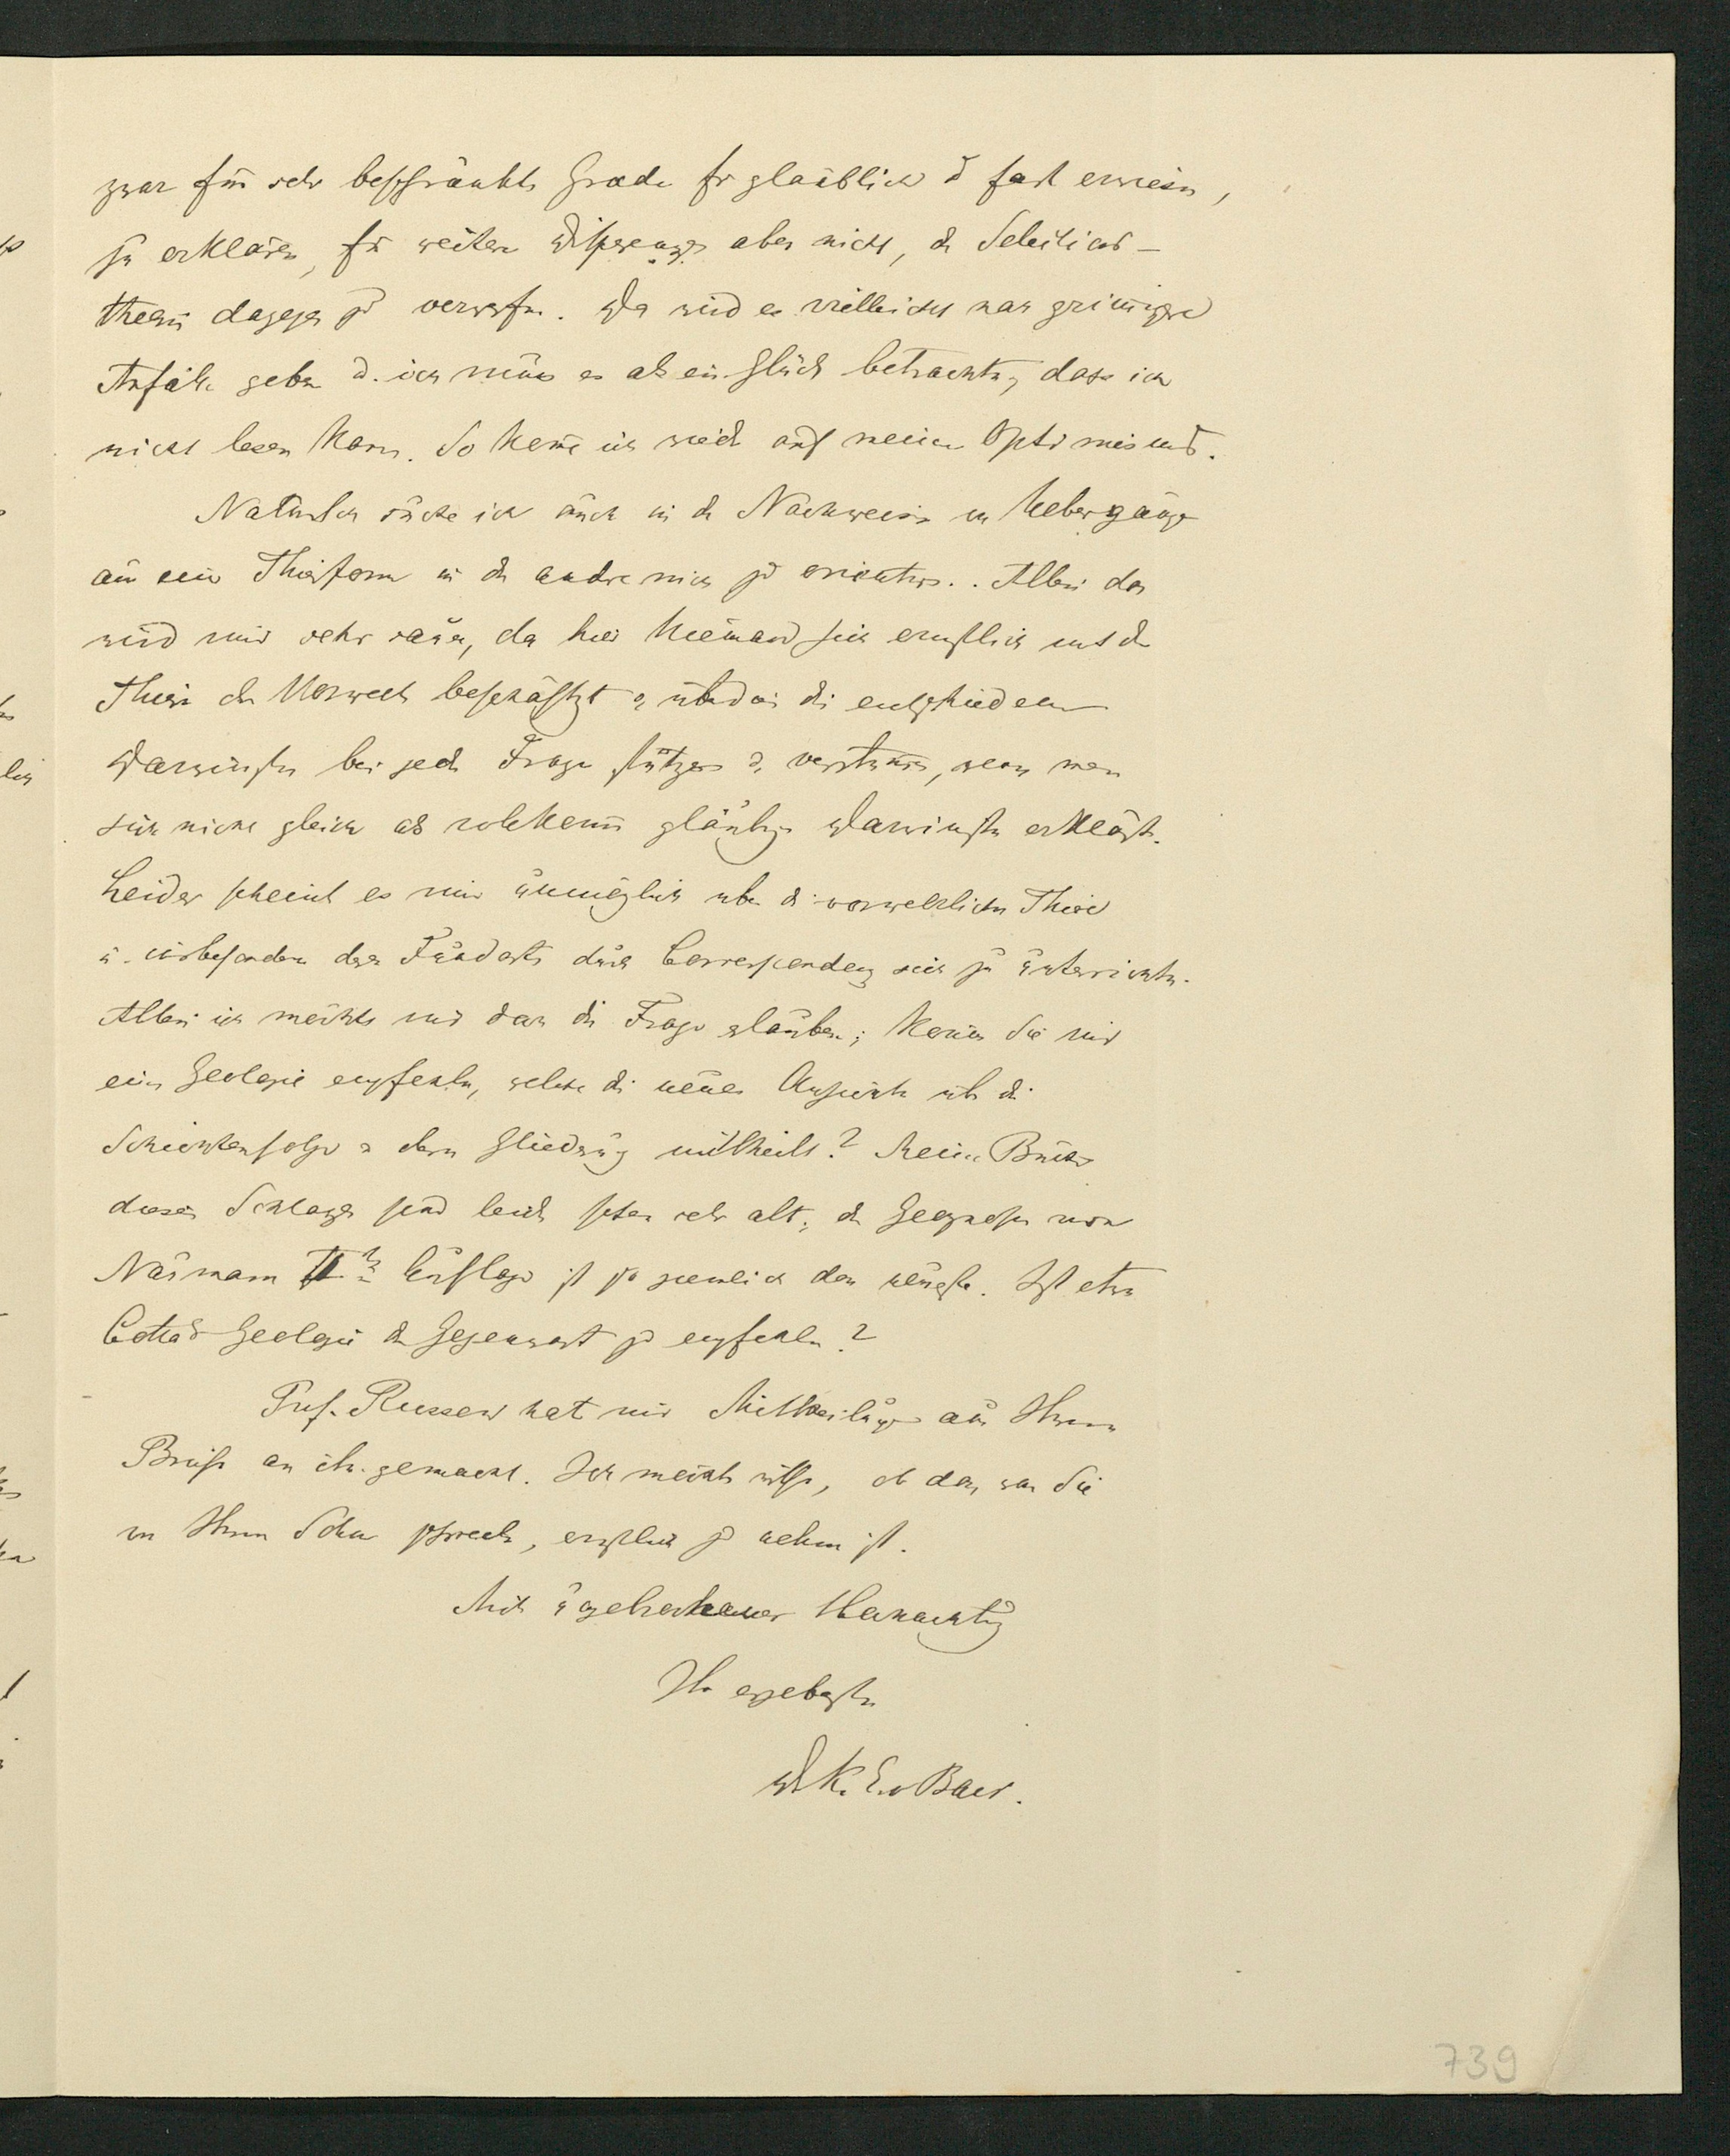 zwar für sehr beschränkte Grade für glaublich u fast erwiesen,
zu erklären, für weitere Differenzen aber nicht, die Selections-
theorie dagegen zu verwerfen. Da wird es vielleicht noch grimmigere
Anfälle geben u. ich muss es als ein Glück betrachten, dass ich
nicht lesen kann. So komme ich wieder auf meinen Optimismus.
Natürlich suche ich auch in den Nachweisen von Uebergängen
aus einer Thierform in die andre mich zu orientiren. Allein das
wird mir sehr sauer, da hier Niemand sich ernstlich mit den
Thieren der Vorwelt beschäftigt u. überdies die entschiedenen
Darwinisten bei jeder Frage stutzen u. verstummen, wenn man
sich nicht gleich als vollkommen gläubigen Darwinisten erklärt.
Leider scheint es mir unmöglich über die vorweltlichen Thiere
u. insbesondere deren Fundorte durch Correspondenz mich zu unterrichten.
Allein ich möchte mir doch die Frage erlauben; können Sie mir
eine Geologie empfehlen, welche die neuen Ansichten über die
Schichtenfolge u deren Gliederung mittheilt? Meine Bücher
dieses Schlages sind leider schon sehr alt; die Geognosie von
Naumann IIte Auflage ist so ziemlich das neueste. Ist etwa
Cotta's Geologie der Gegenwart zu empfehlen?
Prof. Russow hat mir Mittheilungen aus Ihrem
Briefe an ihn gemacht. Ich möchte wissen, ob das, was Sie
von Ihrem Sohn schreiben, ernstlich zu nehmen ist.
Mit ungeheuchelter Hochachtung
Ihr ergebenster
Dr K. E. v Baer.
739